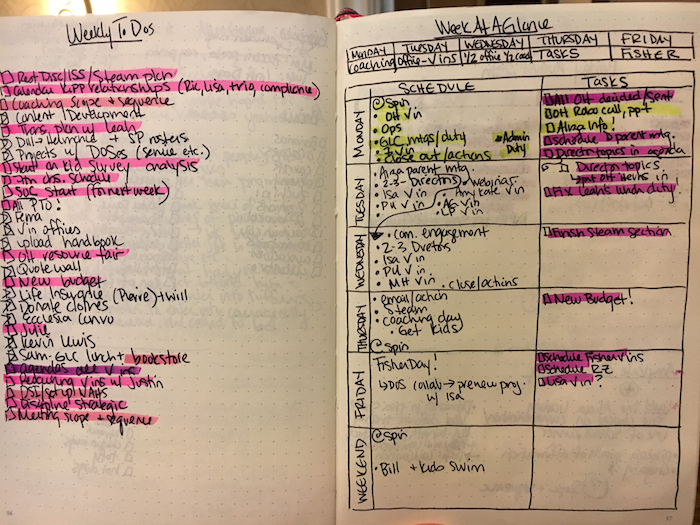 Weekly To Dos
Post Disc/ISS/Steam plan
Calendar KIPP relationships (Ric, Lisa, trio, compliance)
Coaching Scope + sequence
Content / Development
Tiers plan w/ Leah
+ SP rosters
Projects w/ DOSos (service etc.)
Start on kid survey analysis
obs. schedule
SOC Start (for next week)
All PTO!
Fema
V in offices
upload handbook
OH resource fair
Quote wall
New budget
Life Insurance (Pierre) + will
Donate clothes
Ecclesia convo
Julie
Kevin Lewis
Sam-GLC lunch + bookstore
agendas all V ins
Reducing V ins w/ Justin
DSI/setup/VAHS
Discipline Strategic
Meeting scope + sequence
56
Week At A Glance
MONDAY TUESDAY WEDNESDAY THURSDAY FRIDAY
coaching office-V ins 1/2 office 1/2 coach TASKS FISHER
SCHEDULE TASKS
MONDAY
@ Spin
OH V in
Ops
GLC mtgs/duty
Admin Duty
V in
close out/actions
All OH decided/sent
OH Robo call, ppt
Aliza Info!
Schedule D parent mtg.
Director topics in agenda
TUESDAY
Aliza parent mtg.
2-3 Directors
webinar
Isa V in
Amy Kate V in
PU V in
AG V in
LP V in
Director topics
put OH texts in
Fix Leah's lunch duty!
WEDNESDAY
com. engagement
2-3 Directors
Isa V in
PU V in
MH V in
close/actions
Finish Steam section
THURSDAY
email/action
Steam
coaching day
Get Kids
@ spin
New Budget!
FRIDAY
Fisher Day!
DOS collab → preview proj. w/ Isa
Schedule Fisher V ins
Schedule RZ
Lisa V in?
WEEKEND
@ spin
Bill + kido swim
57